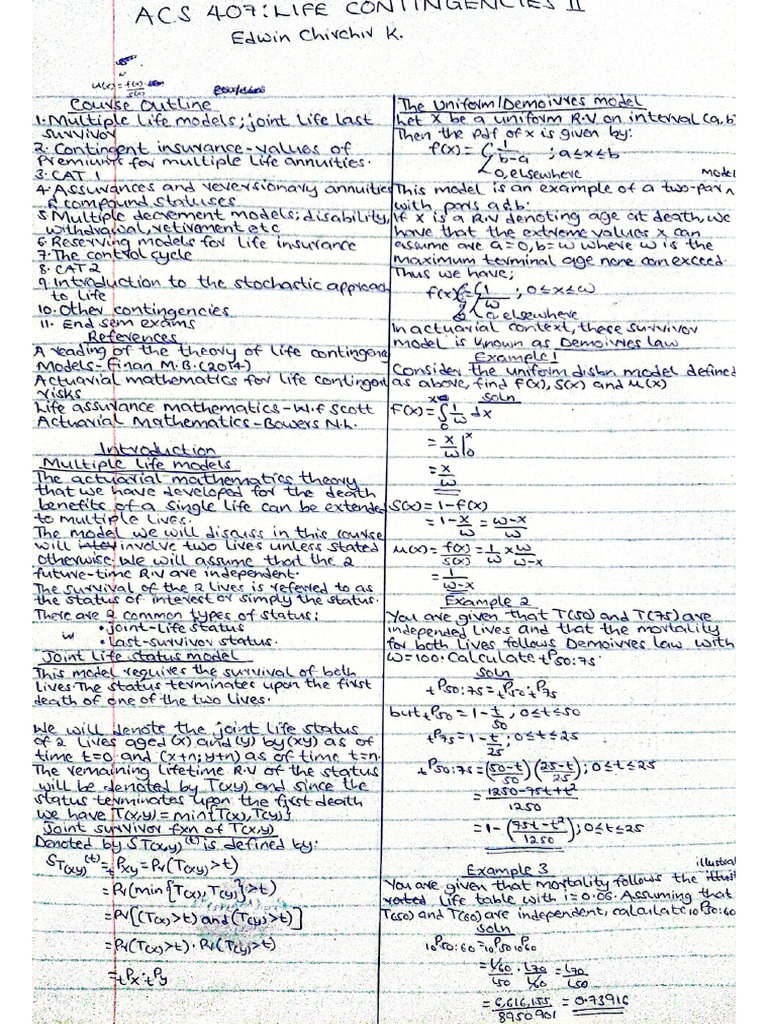 ACS 407: LIFE CONTINGENCIES II
Edwin Chirchir K.
μ(x) = f(x)/S(x)
Course Outline
1. Multiple Life models; joint Life last
survivor
2. Contingent insurance - values of
Premiums for multiple Life annuities.
3. CAT 1
4. Assurances and reversionary annuities
& compound statuses
5. Multiple decrement models; disability,
withdrawal, retirement etc
6. Reserving models for life insurance
7. The control cycle
8. CAT 2
9. Introduction to the stochastic approach
to life
10. Other contingencies
11. End sem exams
References
A reading of the theory of life contingenc
Models - Finan M.B. (2014)
Actuarial mathematics for life contingen
risks
Life assurance mathematics - W.f Scott
Actuarial Mathematics - Bowers N.L.
Introduction
Multiple Life models
The actuarial mathematics theory
that we have developed for the death
benefits of a single life can be extended
to multiple lives.
The model we will discuss in this course
will involve two lives unless stated
otherwise. We will assume that the 2
future-time R.V are independent.
The survival of the 2 lives is referred to as
the status of interest or simply the status.
There are 2 common types of status;
• joint-life status
w
• last-survivor status.
Joint Life status model
This model requires the survival of both
Lives. The status terminates upon the first
death of one of the two lives.
We will denote the joint life status
of 2 lives aged (x) and (y) by (xy) as of
time t=0 and (x+n; y+n) as of time t=n.
The remaining lifetime R.V of the status
will be denoted by T(xy) and since the
status terminates upon the first death
we have T(x,y) = min{T(x), T(y)}
Joint survivor fxn of T(x,y)
Denoted by S_T(x,y)(t) is defined by:
S_T(xy)(t) = tPxy = Pr(T(xy) > t)
= Pr(min{T(x), T(y)} > t)
= Pr[(T(x) > t) and (T(y) > t)]
= Pr(T(x) > t) · Pr(T(y) > t)
= tPx · tPy
The Uniform/Demoivres model
Let X be a uniform R.V on interval (a,b)
Then the pdf of x is given by:
f(x) = { 1/(b-a) ; a≤x≤b
0, elsewhere
model
This model is an example of a two-par ^
with pars a & b.
If X is a R.V denoting age at death, we
have that the extreme values x can
assume are a=0, b=ω where ω is the
maximum terminal age none can exceed.
Thus we have;
f(x) = { 1/ω ; 0≤x≤ω
0, elsewhere
In actuarial context, these survivor
model is known as Demoivres law
Example 1
Consider the uniform disbn model defined
as above, find f(x), S(x) and μ(x)
soln
F(x) = ∫₀ˣ 1/ω dx
= x/ω |₀ˣ
= x/ω
S(x) = 1 - f(x)
= 1 - x/ω = (ω-x)/ω
μ(x) = f(x)/S(x) = 1/ω × ω/(ω-x)
= 1/(ω-x)
Example 2
You are given that T(50) and T(75) are
independed lives and that the mortality
for both Lives follows Demoivres law with
ω=100. Calculate tP50:75.
soln
tP50:75 = tP50 · tP75
but tP50 = 1 - t/50 ; 0≤t≤50
tP75 = 1 - t/25 ; 0≤t≤25
tP50:75 = ((50-t)/50)((25-t)/25) ; 0≤t≤25
= (1250-75t+t²)/1250
= 1 - ((75t-t²)/1250) ; 0≤t≤25
Example 3
You are given that mortality follows the illustrated
Life table with i=0.06. Assuming that
T(50) and T(60) are independent, calculate 10P50:60
soln
10P50:60 = 10P50 10P60
= l60/l50 · l70/l60 = l70/l50
= 6,616,155/8950901 = 0.73916